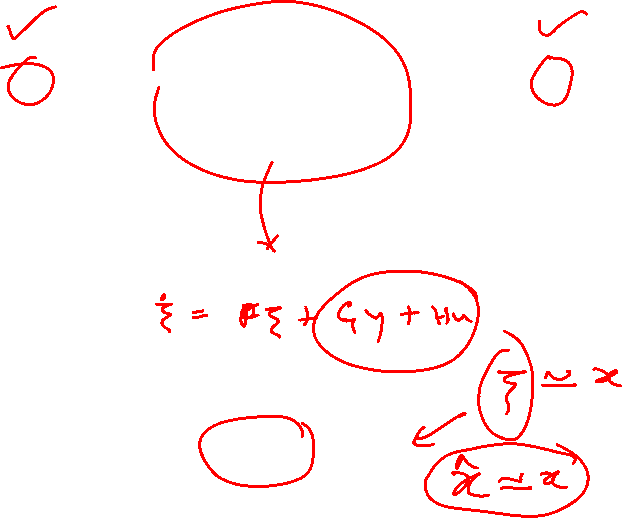 ξ̇ = Fξ + Gy + Hu
ξ ≃ x
x̂ ≃ x